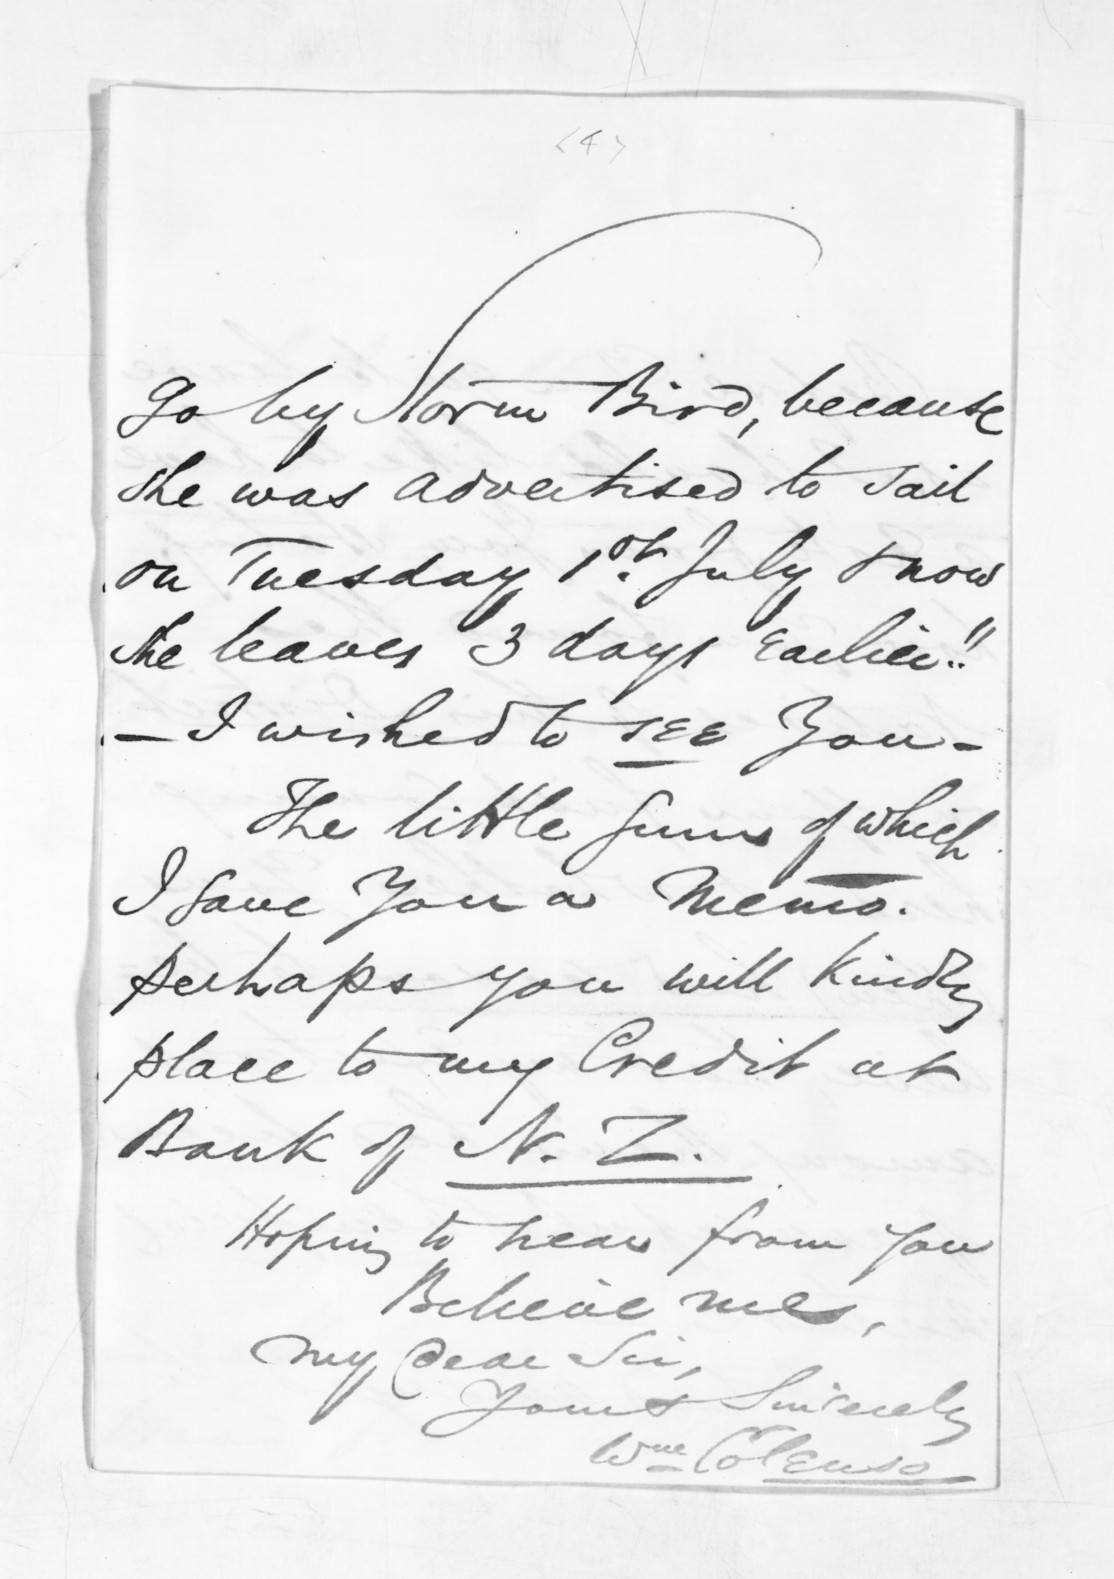 <4>
go by Storm Bird, because
she was advertised to sail
on Tuesday 1st. July & now
she leaves 3 days earlier!!
— I wished to see You —
The little sums of which
I gave You a Memo.
perhaps you will kindly
place to my Credit at
Bank of N. Z.
Hoping to hear from you
Believe me,
My Dear Sir,
Yours Sincerely
Wm Colenso